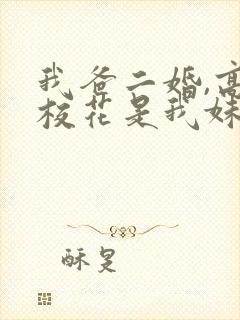 我爸二婚,高
校花是我妹
酥是